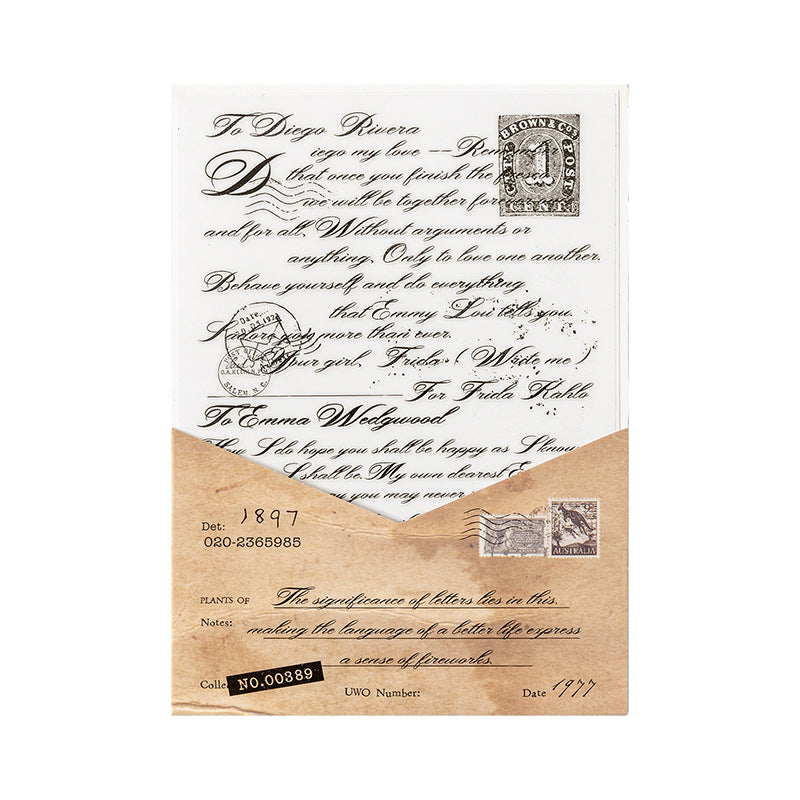 To Diego Rivera
Diego my love -- Remember
that once you finish the fresco
we will be together forever
and for all. Without arguments or
anything, Only to love one another.
Behave yourself and do everything
that Emmy Lou tells you.
I adore you more than ever.
Your girl, Frida (Write me)
For Frida Kahlo
To Emma Wedgwood
How I do hope you shall be happy as I know
I shall be. My own dearest E
you may never
BROWN & Co's
CITY POST
1
CENT
Date
1974
POST
SALEM, N.C.
Det: 1897
020-2365985
AUSTRALIA
PLANTS OF The significance of letters lies in this.
Notes: making the language of a better life express
a sense of fireworks.
Colle NO.00389
UWO Number:
Date 1977